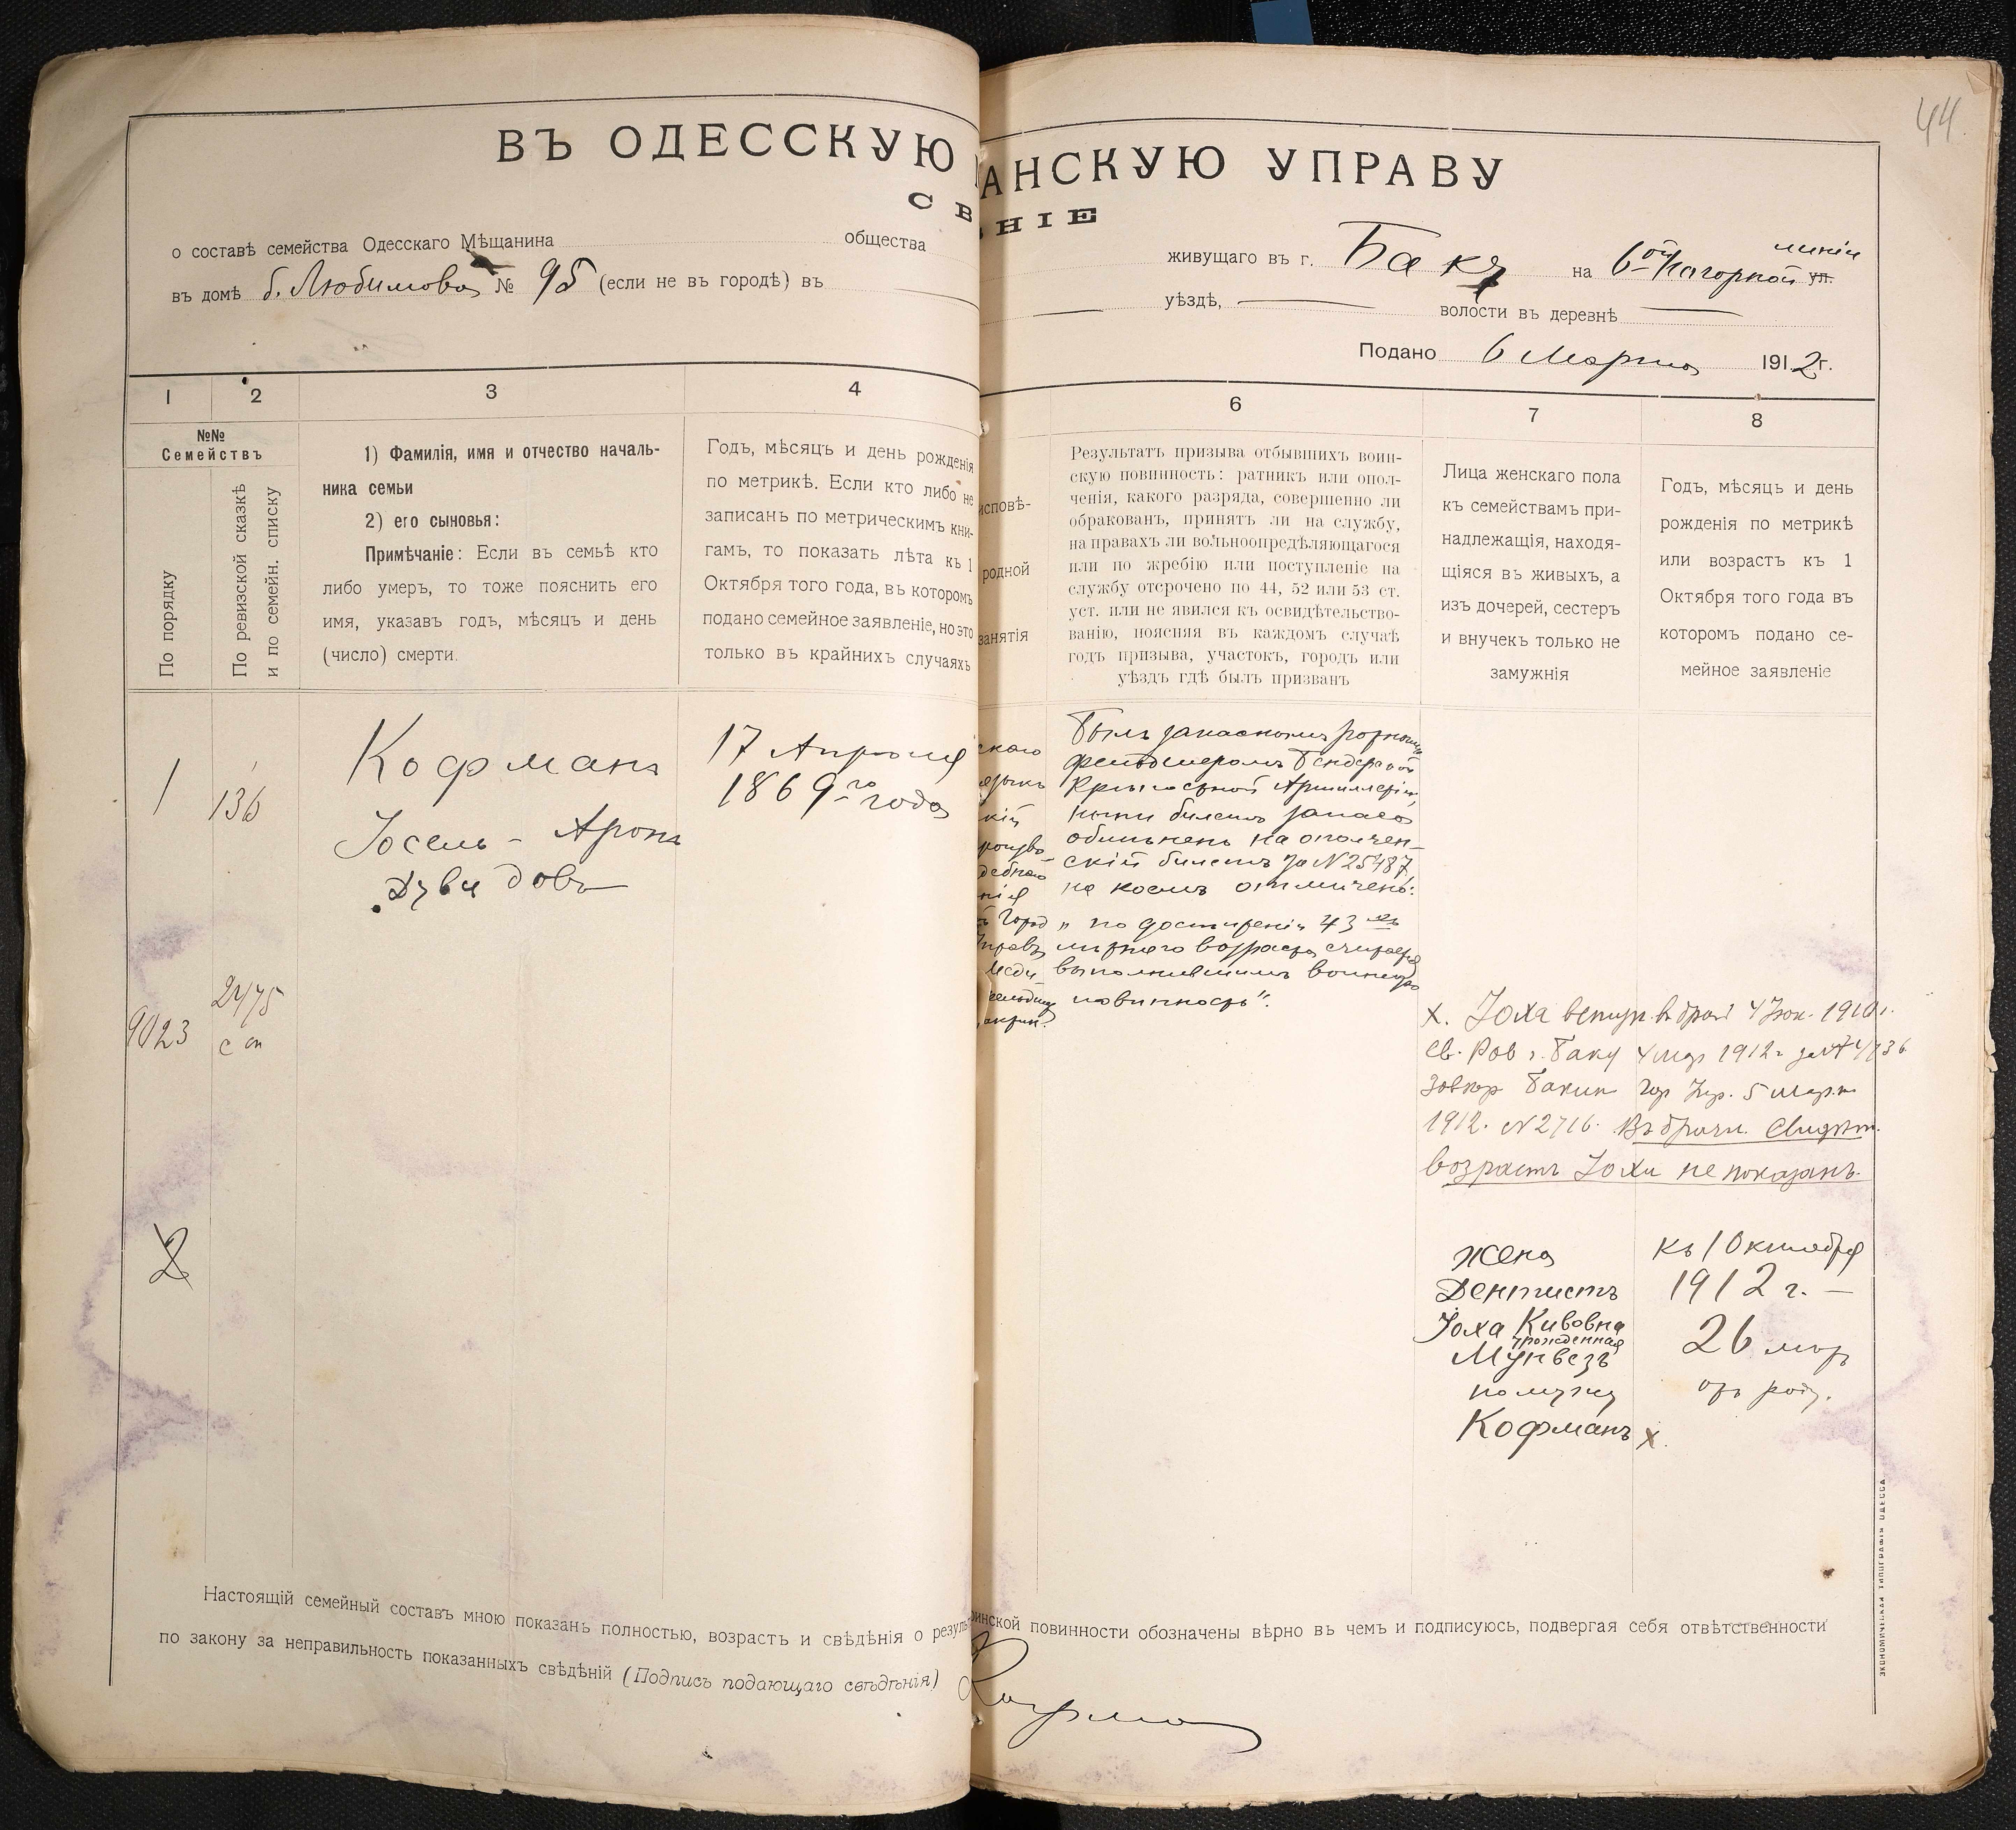 44
ВЪ ОДЕССКУЮ
АНСКУЮ УПРАВУ
СВ
НІЕ
о составѣ семейства Одесскаго Мѣщанина общества
живущаго въ г. Баку на 6ой Нагорной ул. линіи
въ домѣ б. Любимова № 95 (если не въ городѣ) въ
уѣздѣ, волости въ деревнѣ
Подано 6 Марта 1912 г.
1 2 3 4
6 7 8
№№
Семействъ
По порядку
По ревизской сказкѣ
и по семейн. списку
1) Фамилія, имя и отчество началь-
ника семьи
2) его сыновья:
Примѣчаніе: Если въ семьѣ кто
либо умеръ, то тоже пояснить его
имя, указавъ годъ, мѣсяцъ и день
(число) смерти.
Годъ, мѣсяцъ и день рожденія
по метрикѣ. Если кто либо не
записанъ по метрическимъ кни-
гамъ, то показать лѣта къ 1
Октября того года, въ которомъ
подано семейное заявленіе, но это
только въ крайнихъ случаяхъ
исповѣ-
родной
занятія
Результатъ призыва отбывшихъ воин-
скую повинность: ратникъ или опол-
ченія, какого разряда, совершенно ли
обракованъ, принятъ ли на службу,
на правахъ ли вольноопредѣляющагося
или по жребію или поступленіе на
службу отсрочено по 44, 52 или 53 ст.
уст. или не явился къ освидѣтельство-
ванію, поясняя въ каждомъ случаѣ
годъ призыва, участокъ, городъ или
уѣздъ гдѣ былъ призванъ
Лица женскаго пола
къ семействамъ при-
надлежащія, находя-
щіяся въ живыхъ, а
изъ дочерей, сестеръ
и внучекъ только не
замужнія
Годъ, мѣсяцъ и день
рожденія по метрикѣ
или возрастъ къ 1
Октября того года въ
которомъ подано се-
мейное заявленіе
1
136
Кофманъ
Іосель - Аронъ
Дувидовъ
17 Апрѣля
1869го года
9023
2475
сп
2
скаго
языкъ
кій
произво-
дебнаго
нія
Город
Управѣ
Былъ запаснымъ
фельдшеромъ Бендерской
Крѣпостной Артиллеріи,
нынѣ билетъ запаса
обмѣненъ на ополчен-
скій билетъ за № 25487,
на коемъ отмѣчено:
"по достиженіи 43 хъ
лѣтняго возраста считается
выполнившимъ воинскую
повинность".
х. Іоха вступ. въ бракъ 4 Іюн. 1910 г.
св. Рав г. Баку 4 мар 1912 г за № 4/136
Бакин Гор Упр. 5 Март
1912. № 2716. Въ брачн. Свидѣт.
возрастъ Іохи не показанъ.
жена
Дентистъ
Іоха Кивовна
урожденная
Мунвезъ
по мужу
Кофманъ х.
къ 1 Октября
1912 г. —
26 лѣтъ
отъ роду.
Настоящій семейный составъ мною показанъ полностью, возрастъ и свѣдѣнія о резуль
инской повинности обозначены вѣрно въ чемъ и подписуюсь, подвергая себя отвѣтственности
по закону за неправильность показанныхъ свѣдѣній (Подпись подающаго свѣдѣнія)
Кофман
ЭКОНОМИЧЕСКАЯ ТИПОГРАФІЯ ОДЕССА